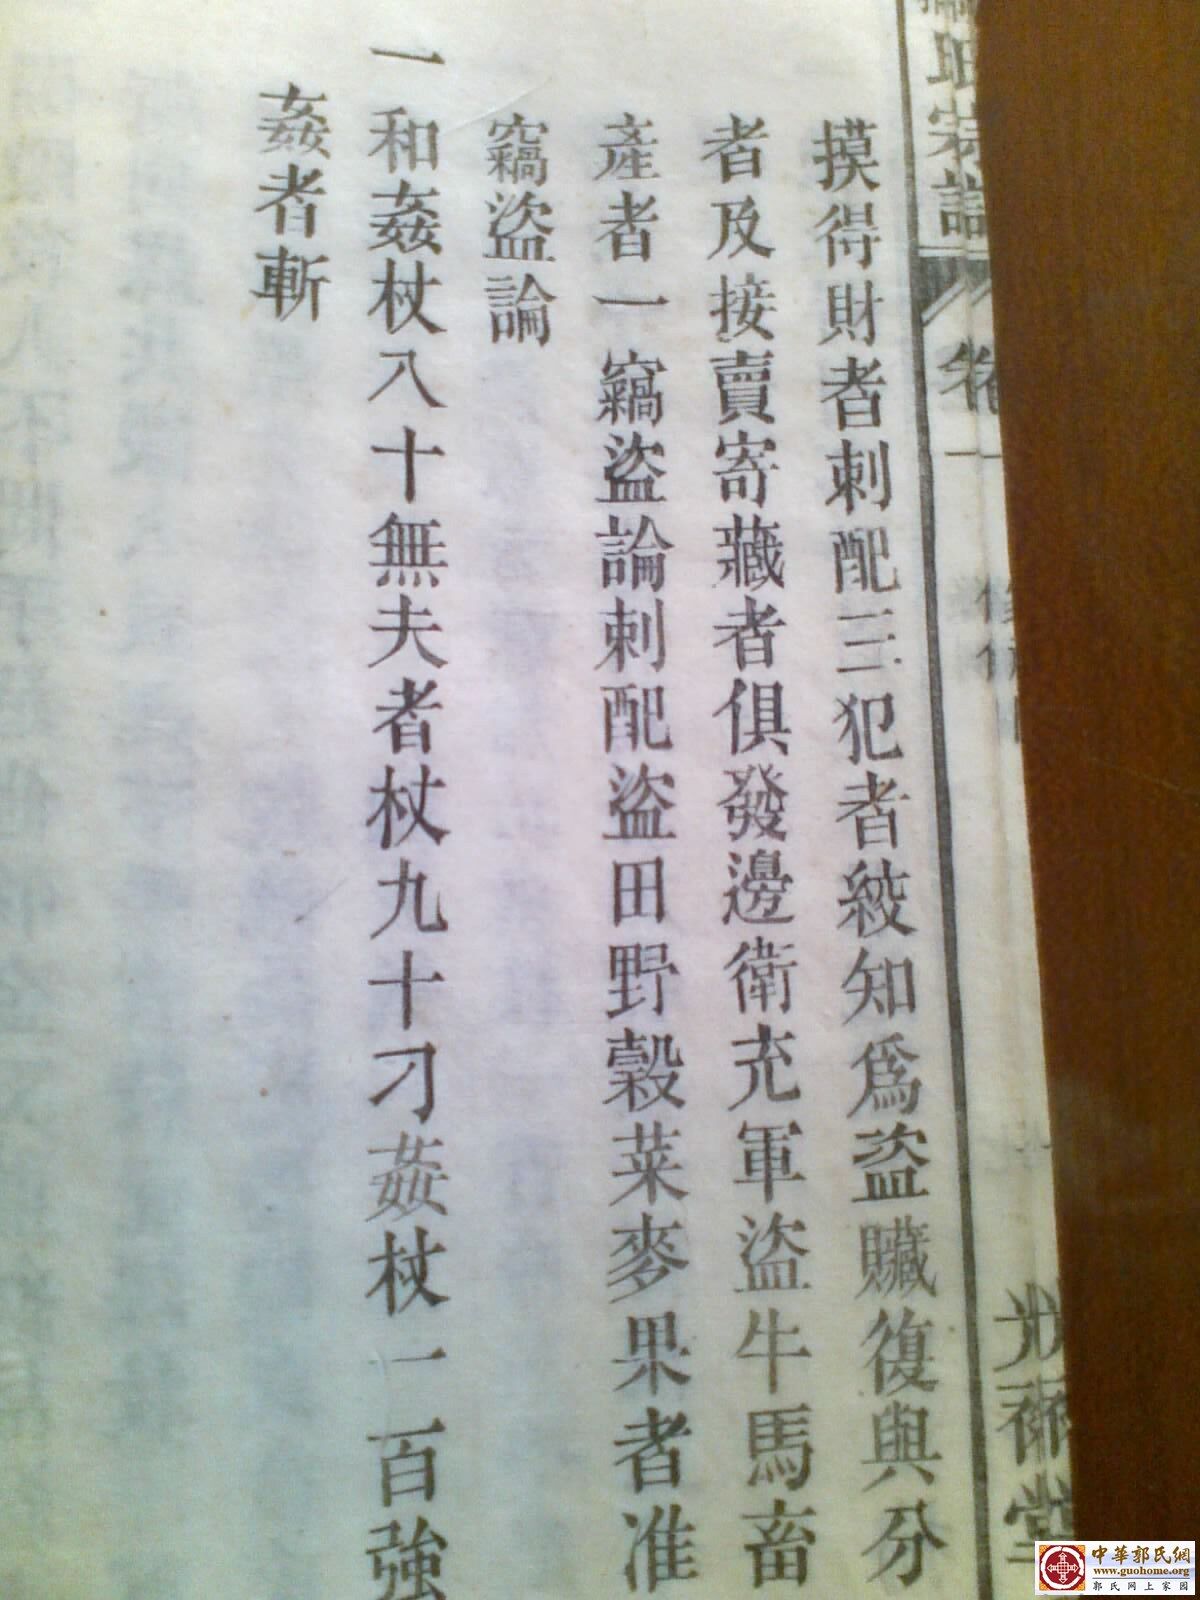 宗譜
卷一
摸得財者刺配三犯者絞知爲盜贜復與分
者及接賣寄藏者俱發邊衛充軍盜牛馬畜
產者一竊盜論刺配盜田野穀菜麥果者准
竊盜論
一和姦杖八十無夫者杖九十刁姦杖一百強
姦者斬
中華郭氏網
www.guohome.org
郭氏网上家园